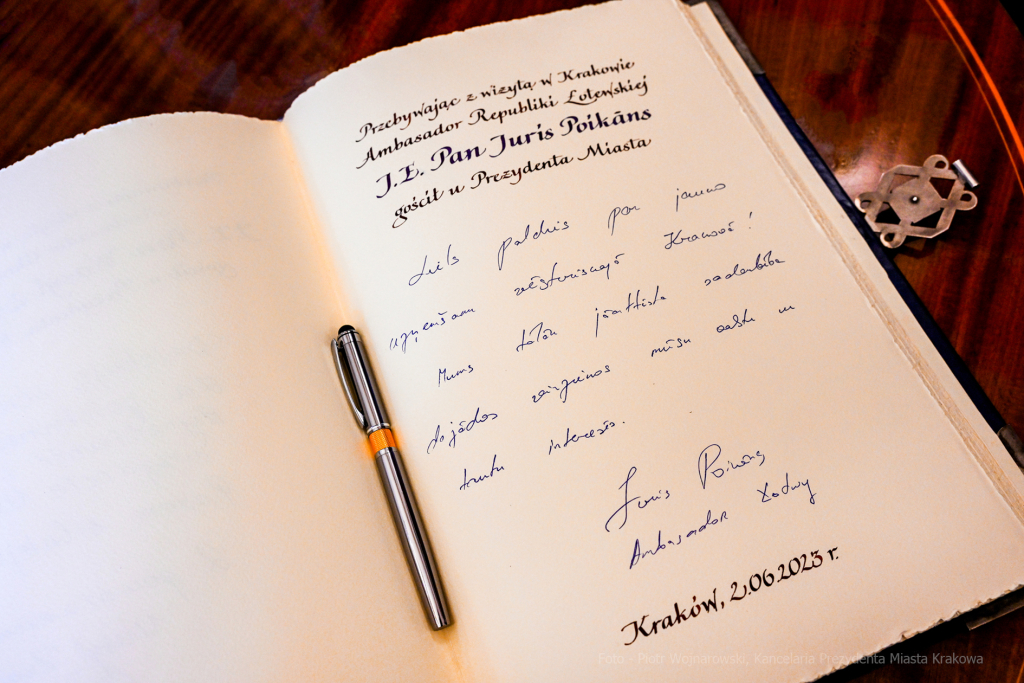 Przebywając z wizytą w Krakowie
Ambasador Republiki Łotewskiej
J.E. Pan Juris Poikāns
gościł u Prezydenta Miasta
Liels paldies par jauno
uzņemšanu vēsturiskajā Krakovā!
Mums tālāk jāattīsta sadarbība
dažādos virzienos mūsu valstu un
tautu interesēs.
Juris Poikāns
Ambasador Łotwy
Kraków, 2.06.2023 r.
Foto - Piotr Wojnarowski, Kancelaria Prezydenta Miasta Krakowa